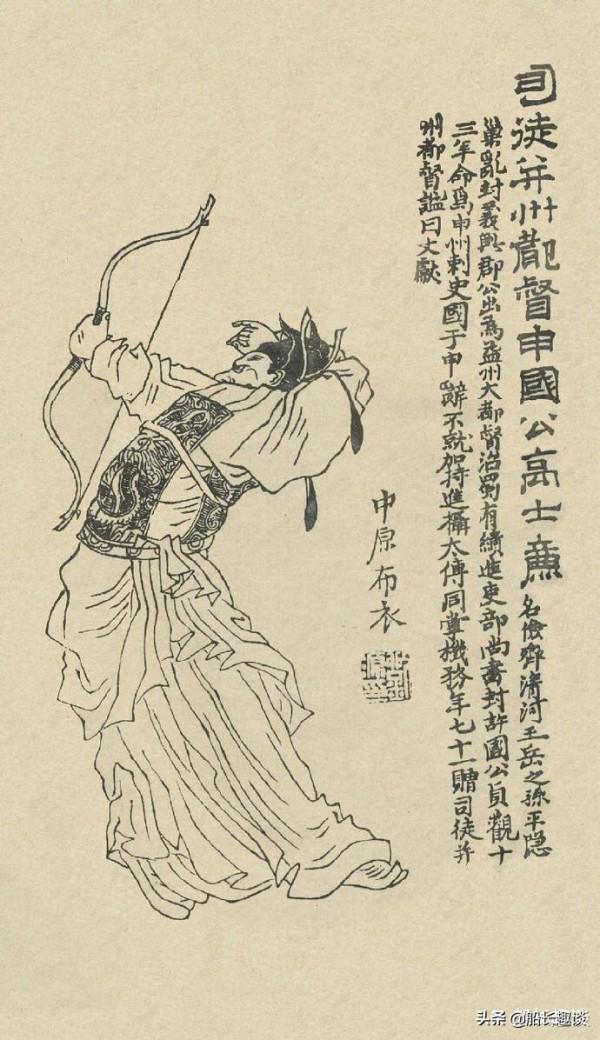 司徒并州都督申國公高士廉 名儉齊清河王岳之孫平隐
巢亂封義興郡公出為益州大都督治蜀有績進吏部尚書封許國公貞觀十
三年命為申州刺史國于申辭不就加持進攝太傅同掌機務年七十一贈司徒并
州都督謚曰文獻
中原布衣
头条 @船长趣谈